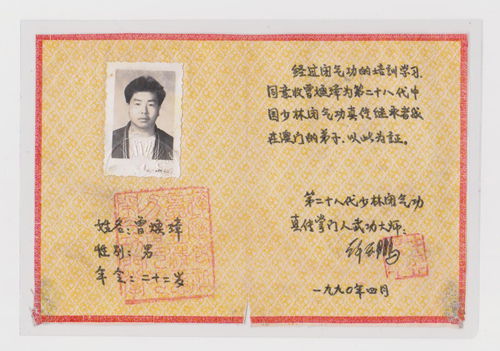 姓名:曾焕瑋
性别:男
年令:二十二岁
经过闭气功的培训学习
同意收曾焕瑋为第二十八代中
国少林闭气功真传继承者我
在澳门的弟子,以此为证。
第二十八代少林闭气功
真传掌门人武功大师:
一九九〇年四月